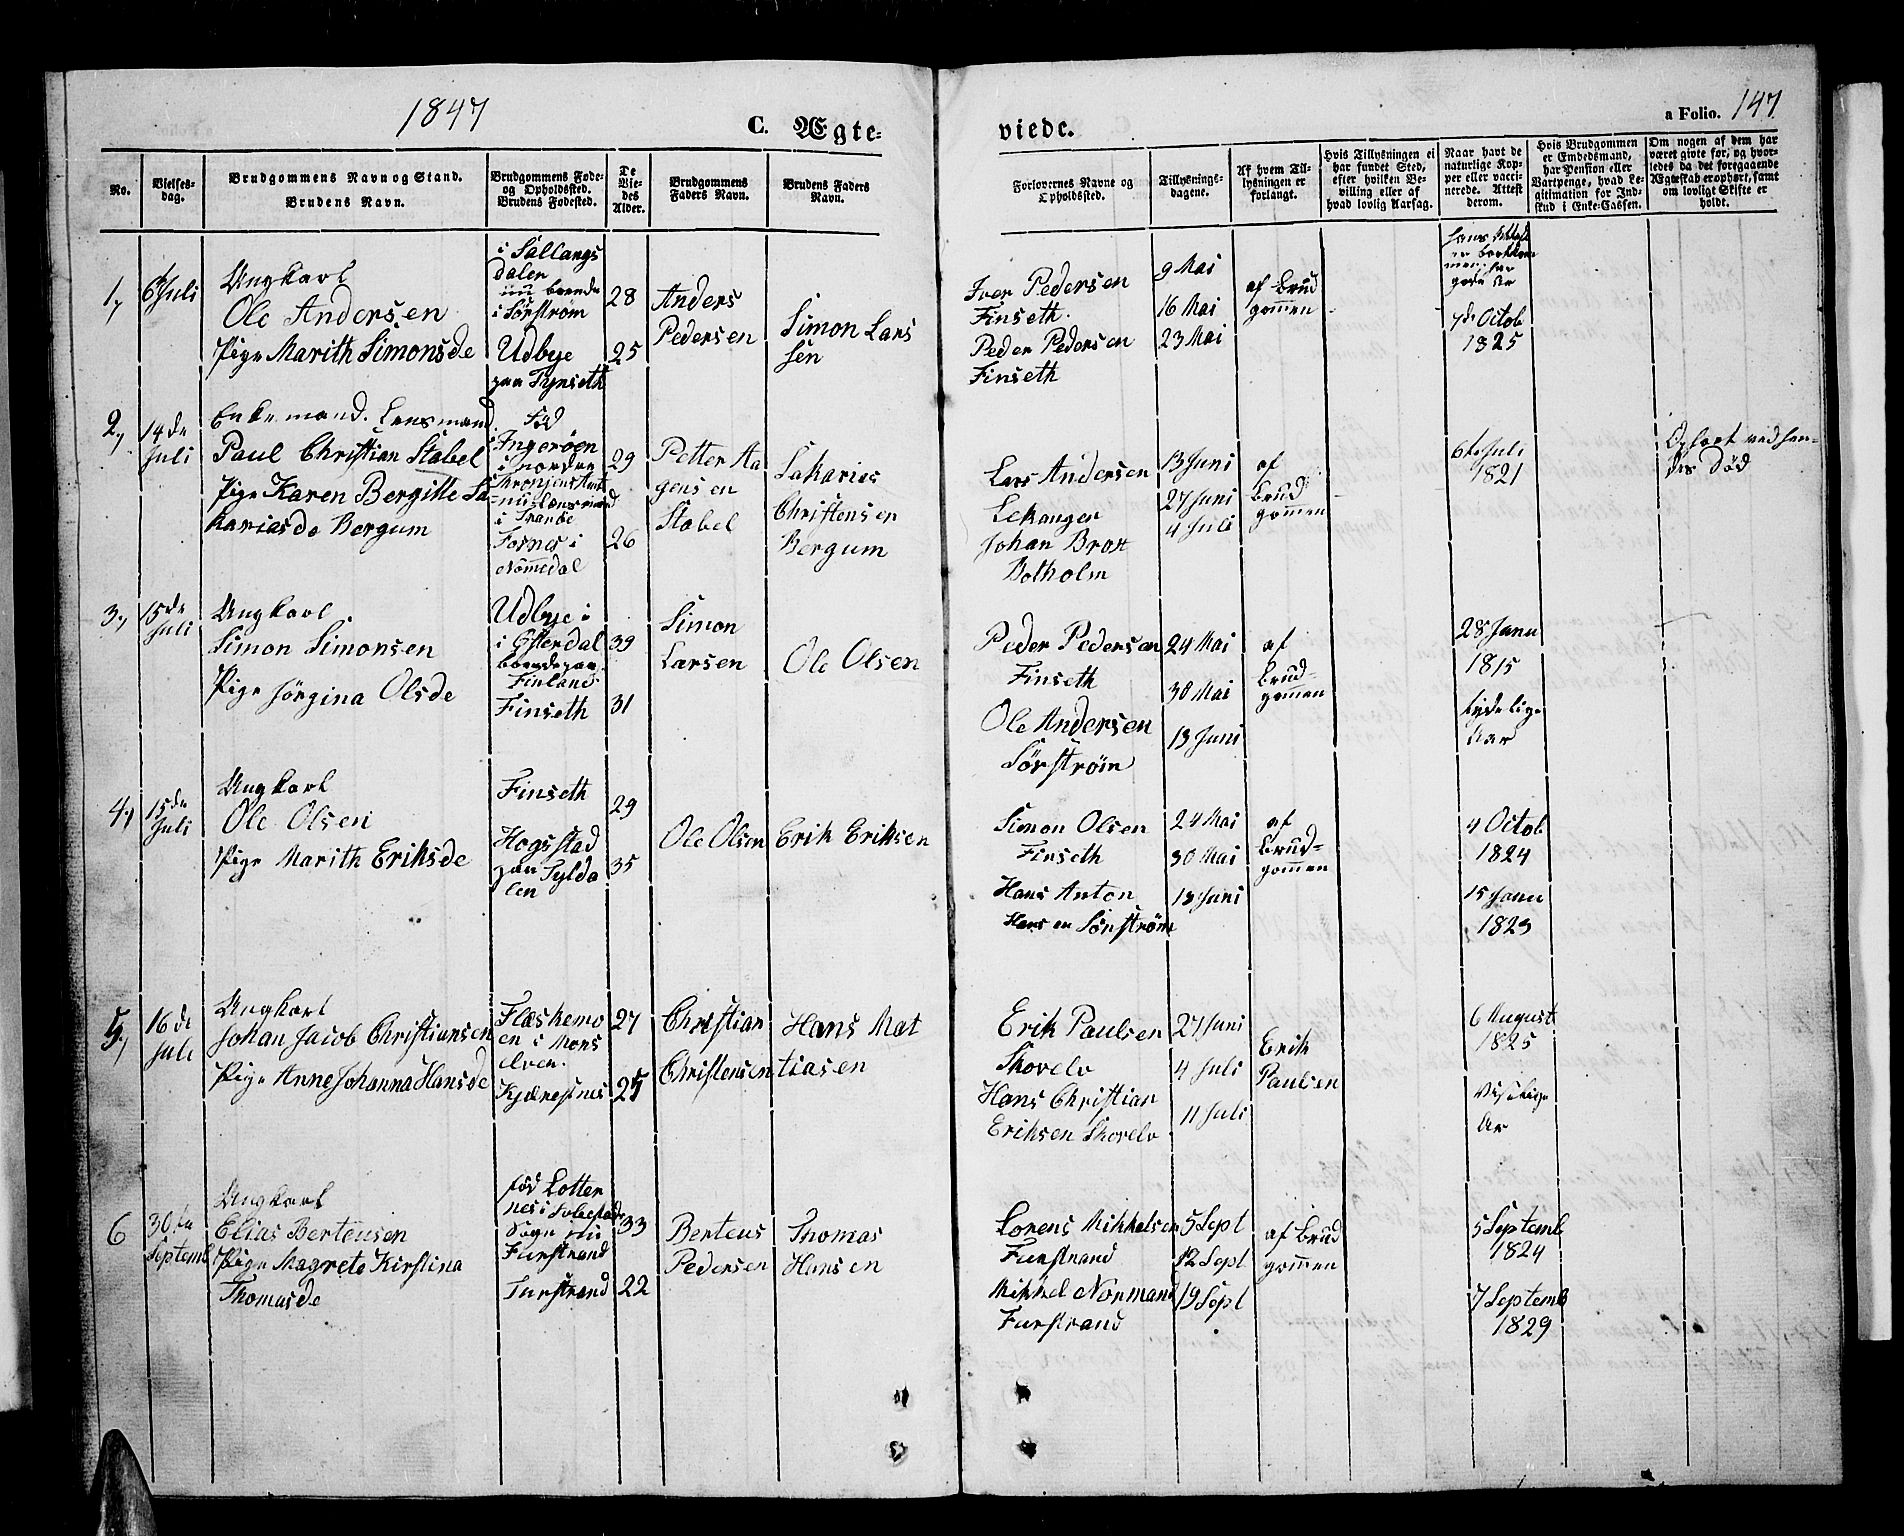 1847
C. Ægte-
viede.
a Folio. 147
No.
Vielses-
dag.
Brudgommens Navn og Stand.
Brudens Navn.
Brudgommens Føde-
og Opholdssted.
Brudens Fødested.
De
Vie-
des
Alder.
Brudgommens
Faders Navn.
Brudens Faders
Navn.
Forlovernes Navne og
Opholdssted.
Tillysnings-
dagene.
Af hvem Til-
lysningen er
forlangt.
Hvis Tillysningen ei
har fundet Sted,
efter hvilken Be-
villing eller af
hvad lovlig Aarsag.
Naar havt de
naturlige Kop-
per eller vacci-
nerede. Attest
derom.
Hvis Brudgommen
er Embedsmand,
har Pension eller
Vartpenge, hvad Le-
gitimation for Ind-
skud i Enke-Cassen.
Om nogen af dem har
været givte før, og hvor-
ledes da det foregaaende
Ægteskab er ophørt, samt
om lovligt Skifte er
holdt.
1,
6 Juli
Ungkarl
Ole Andersen
Pige Marith Simonsde
i Sållangs
dalen
nu boende
i Sørstrøm
Udbye
paa Tynseth
28
25
Anders
Pedersen
Simon Lars
sen
Iver Pedersen
Finseth.
Peder Pedersen
Finseth
9 Mai
16 Mai
23 Mai
af Brud
gommen
7de Octob
1825
2,
14de
Juli
Enkemand. Lensmand
Paul Christian Stabel
Pige Karen Bergitte Sa
kariasde Bergum
Fød
Ingerøen
i nordre
Thronjens Amt
nu Lensmand
i Tranøe
Fosnes i
Nommedal
29
26
Petter Aa
gensen
Stabel
Sakarias
Christensen
Bergum
Lars Andersen
Lekanger
Johan Brox
Botholm
13 Juni
27 Juni
4 Juli
af
Brud
gommen
6te Juli
1821
Ophørt ved hen-
des Død
3,
15de
Juli
Ungkarl
Simon Simonsen
Pige Jørgina Olsde
Udbye i
i Østerdal
boende paa
Finland
Finseth
39
31
Simon
Larsen
Ole Olsen
Peder Pedersen
Finseth
Ole Andersen
Sörström
24 Mai
30 Mai
13 Juni
af
Brud-
gommen
28 Janu
1815
tydelige
Aar
4,
15de
Juli
Ungkarl
Ole Olsen
Pige Marith Eriksde
Finseth
Hogsstad
paa Tylda
len
29
35
Ole Olsen
Erik Eriksen
Simon Olsen
Finseth
Hans Anton
Hansen Sørstrøm
24 Mai
30 Mai
13 Juni
af
Brud-
gommen
4 Octob
1824
15 Janu
1823
5,
16de
Juli
Ungkarl
Johan Jacob Christiansen
Pige Anne Johanna Hansde
Flæskemo
en i Mons
elven.
Kjærestnes
27
25
Christian
Christensen
Hans Mat
tiasen
Erik Paulsen
Skovelv
Hans Christian
Eriksen Skovelv
27 Juni
4 Juli
11 Juli
Erik
Paulsen
6 August
1825
Ar
6
30te
Septemb
Ungkarl
Elias Berteusen
Pige Magrete Kirstina
Thomasde
fød Lotter
nes i
Sogn nu
Furstrand
Furstrand
33
22
Berteus
Pedersen
Thomas
Hansen
Lorens Mikkelsen
Furstrand
Mikkel Normand
Furstrand
5 Sept
12 Sept
19 Sept
af Brud
gommen
5 Septemb
1824
7 Septemb
1829